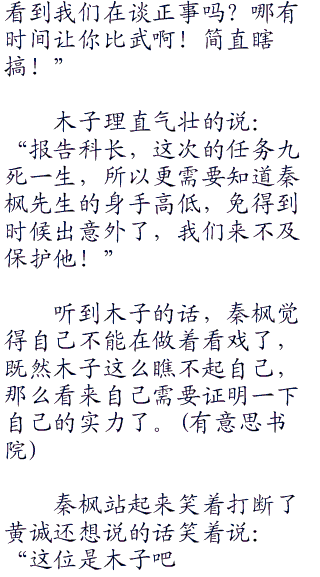 看到我们在谈正事吗？哪有
时间让你比武啊！简直瞎
搞！”
木子理直气壮的说：
“报告科长，这次的任务九
死一生，所以更需要知道秦
枫先生的身手高低，免得到
时候出意外了，我们来不及
保护他！”
听到木子的话，秦枫觉
得自己不能在做着看戏了，
既然木子这么瞧不起自己，
那么看来自己需要证明一下
自己的实力了。(有意思书
院)
秦枫站起来笑着打断了
黄诚还想说的话笑着说：
“这位是木子吧